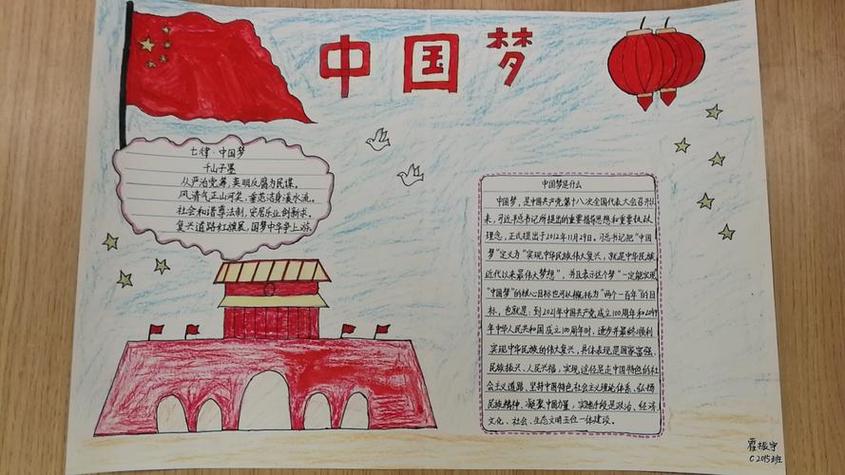 中国梦
七律·中国梦
千山子墨
从严治党箓,英明反腐为民谋。
风清气正山河笑,垂范洁身溪水流。
社会和谐尊法制,安居乐业创新求。
复兴道路红旗展,国梦中华争上游
中国梦是什么
中国梦,是中国共产党第十八次全国代表大会召开以
来,习近平总书记所提出的重要指导思想和重要执政
理念,正式提出于2012年11月29日。习总书记把“中国
梦”定义为“实现中华民族伟大复兴,就是中华民族
近代以来最伟大梦想”,并且表示这个梦“一定能实现
“中国梦”的核心目标也可以概括为“两个一百年”的目
标,也就是:到2021年中国共产党成立100周年和2049
年中华人民共和国成立100周年时,逐步并最终顺利
实现中华民族的伟大复兴,具体表现是国家富强、
民族振兴、人民幸福,实现途径是走中国特色的社
会主义道路、坚持中国特色社会主义理论体系、弘扬
民族精神、凝聚中国力量,实施手段是政治、经济、
文化、社会、生态文明五位一体建设。
霍振宇
C2015班